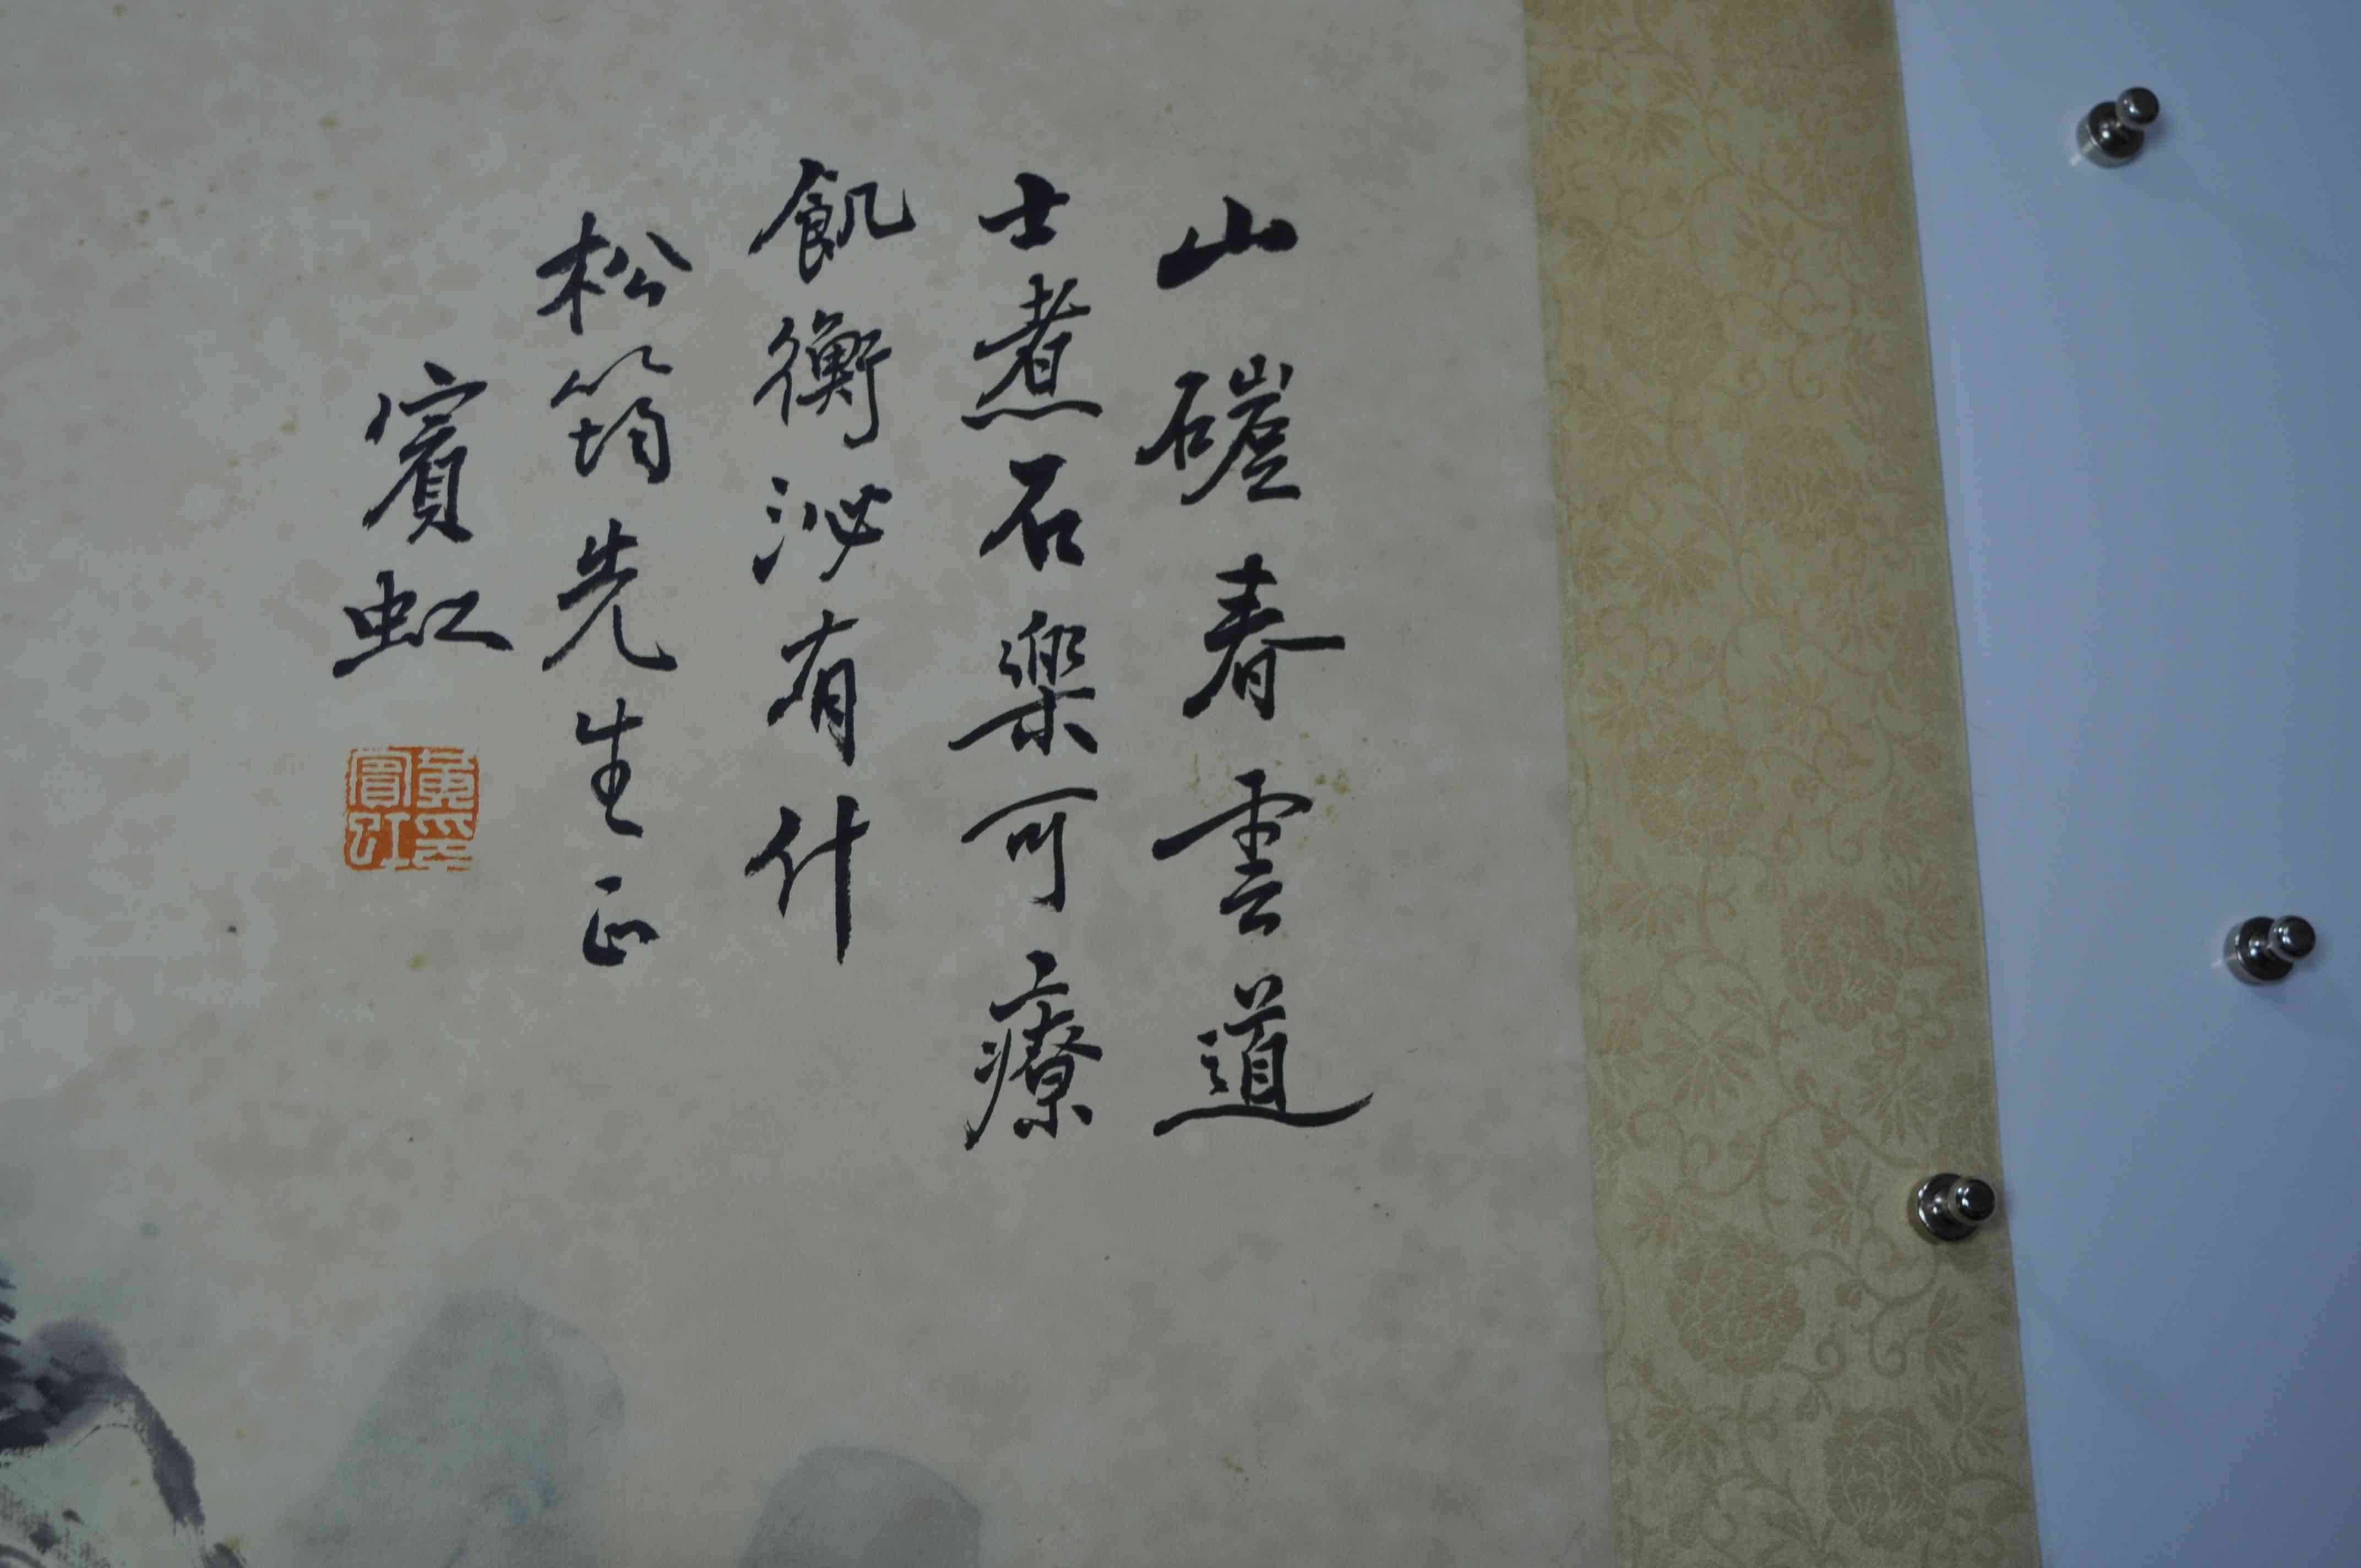 山磑春雲道
士煮石樂可療
飢衡泌有什
松筠先生正
賓虹
黃賓虹印